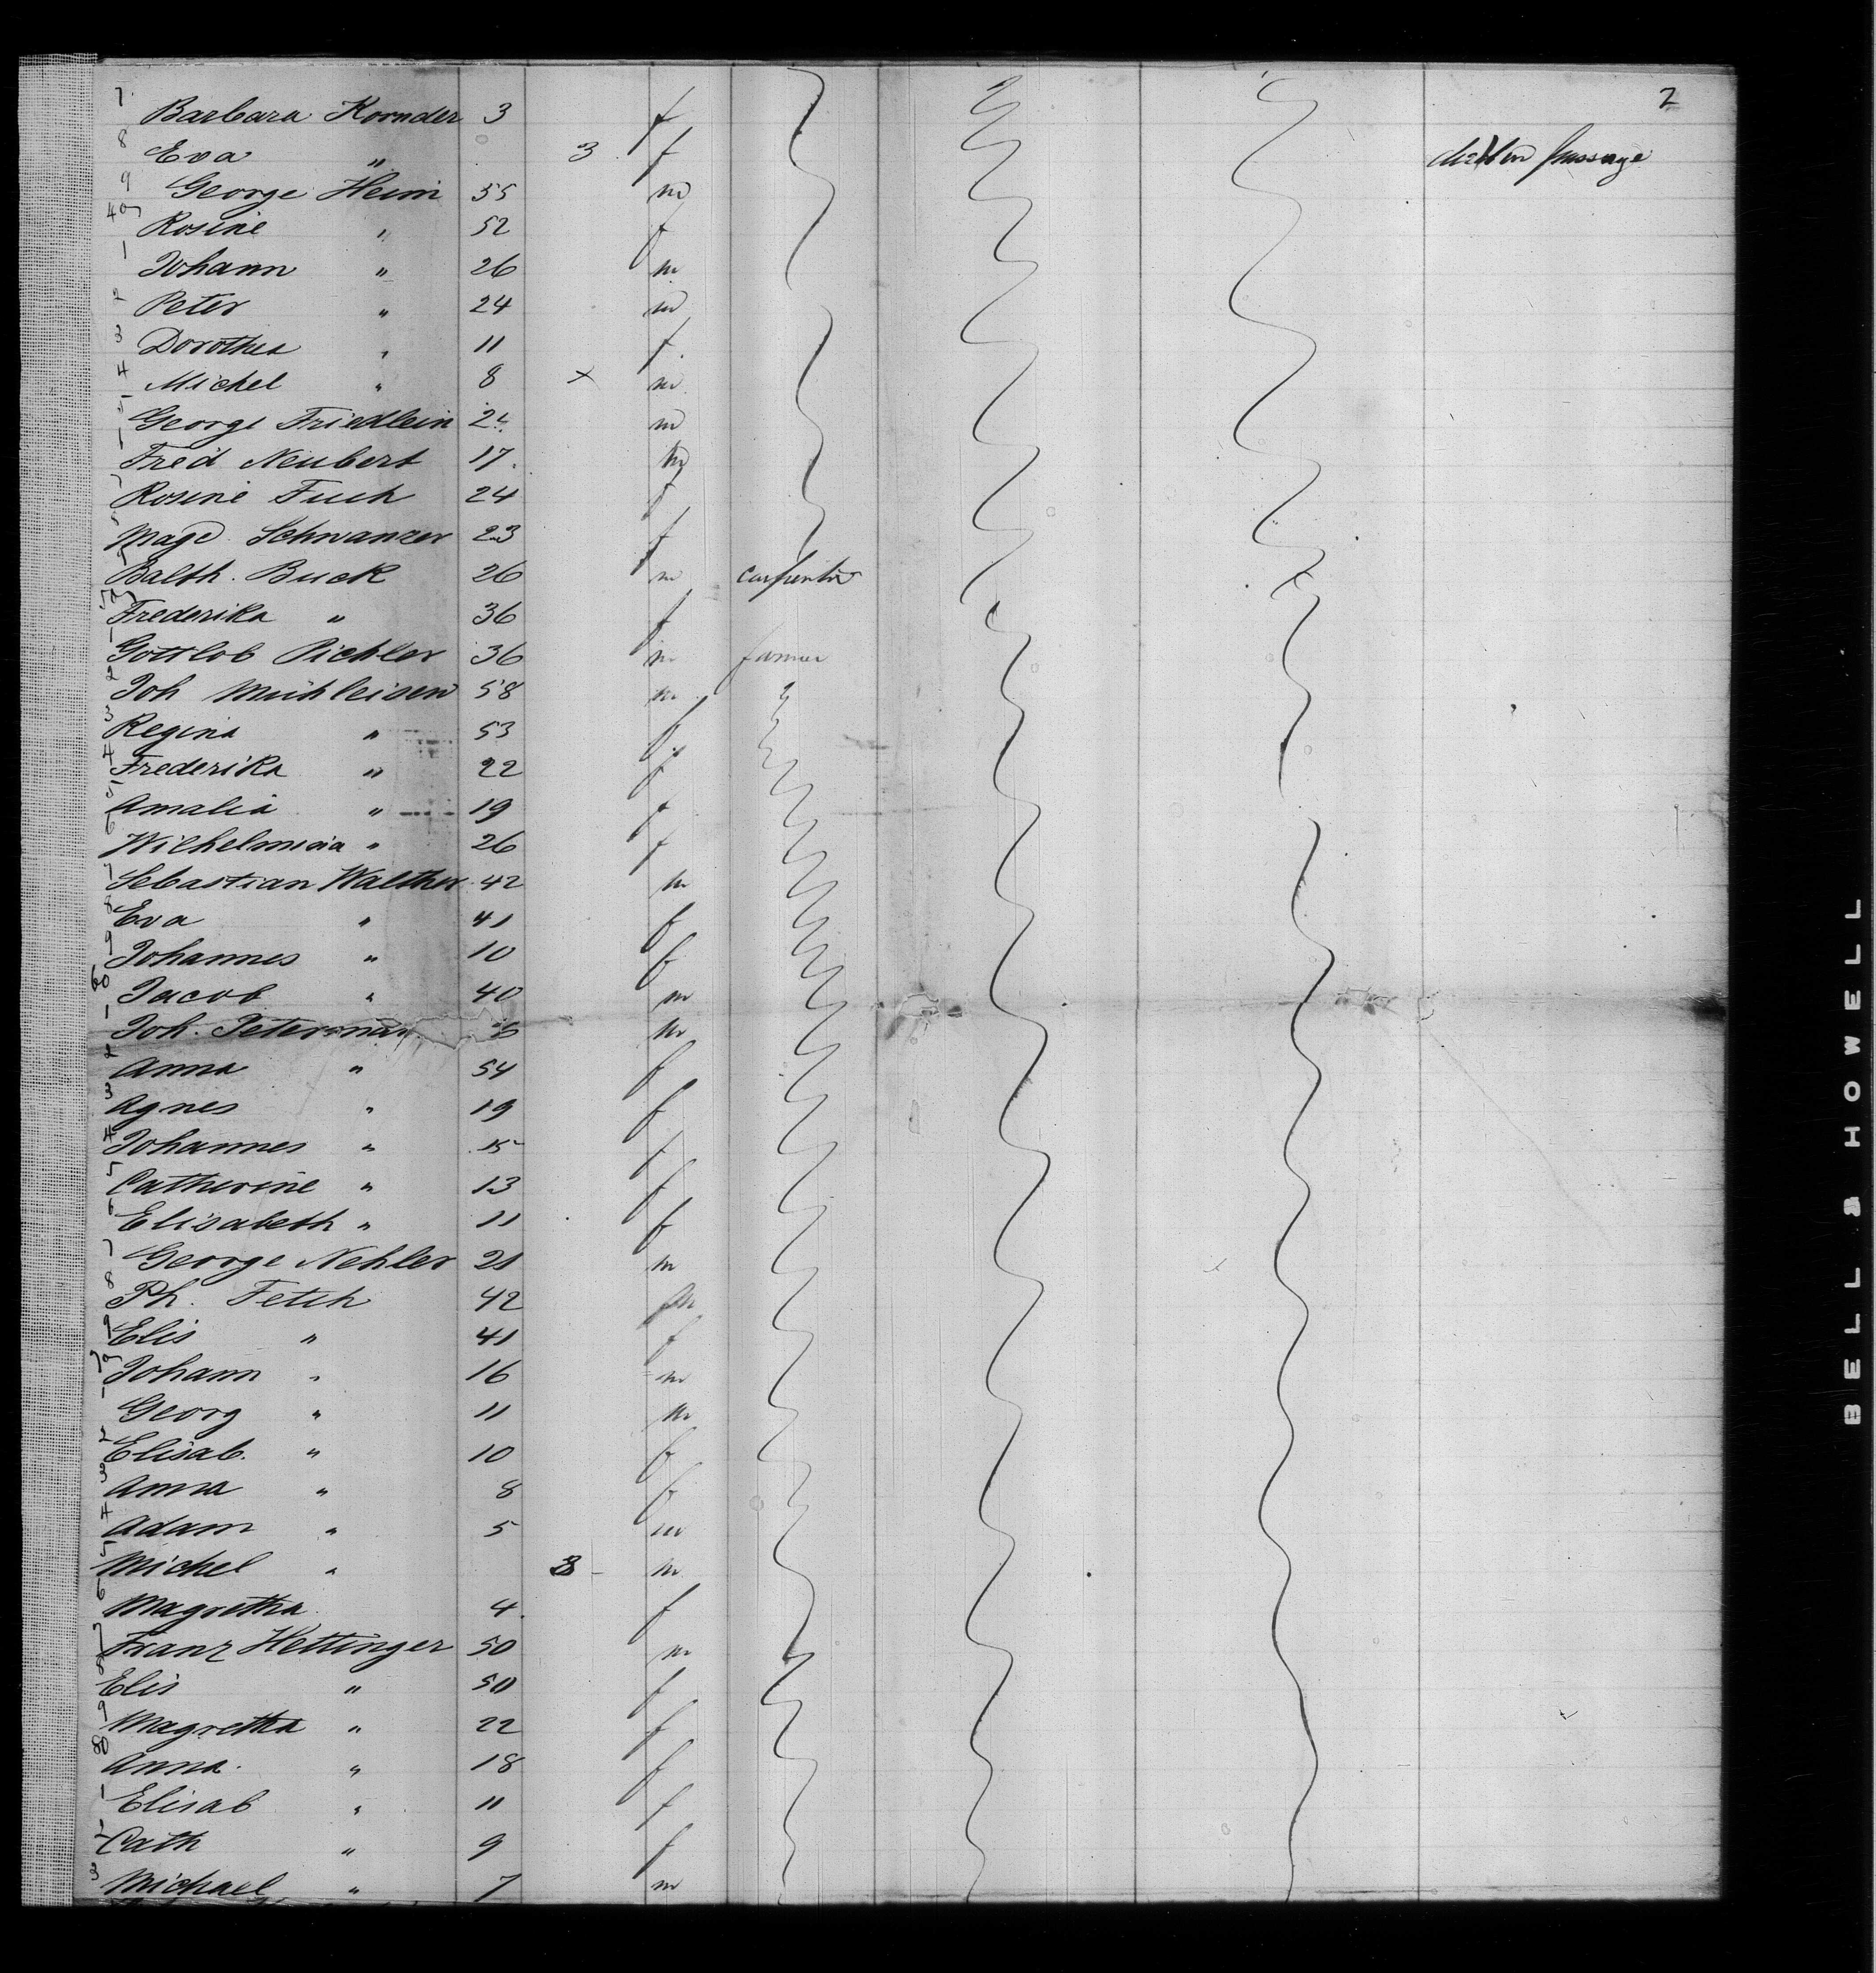 2
7 Barbara Kornder 3 f
8 Eva " 3 f died on passage
9 George Heim 55 m
40 Rosine " 52 f
1 Johann " 26 m
2 Peter " 24 m
3 Dorothea " 11 f
4 Michel " 8 x m
5 George Friedlein m
Fred Neubert 17 m
7 Rosine Fuch 24 f
8 Magd. Schwanzer 23 f
Balth. Buck 26 m carpenter
50 Frederika " 36 f
1 Gottlob Pichler 36 m farmer
2 Joh Mühleisen 58 m
3 Regina " 53 f
4 Frederika " 22 f
5 Amalia " 19 f
6 Wilhelmina " 26 f
7 Sebastian Walther 42 m
8 Eva " 41 f
9 Johannes " 10 f
60 Jacob " 40 m
1 Joh. Peterman m
2 Anna " 54 f
3 Agnes " 19 f
4 Johannes " 15 f
5 Catherine " 13 f
6 Elisabeth " 11 f
7 George Nehler 21 m
8 Ph. Fetch 42 m
9 Elis " 41 f
70 Johann " 16 m
1 Georg " 11 m
2 Elisab. " 10 f
3 Anna " 8 f
4 Adam " 5 m
5 Michel " 3 m
6 Magretha 4 f
7 Franz Hettinger 50 m
8 Elis " 50 f
9 Magretha " 22 f
80 Anna " 18 f
1 Elisab " 11 f
2 Cath " 9 f
3 Michael " 7 m
BELL & HOWELL